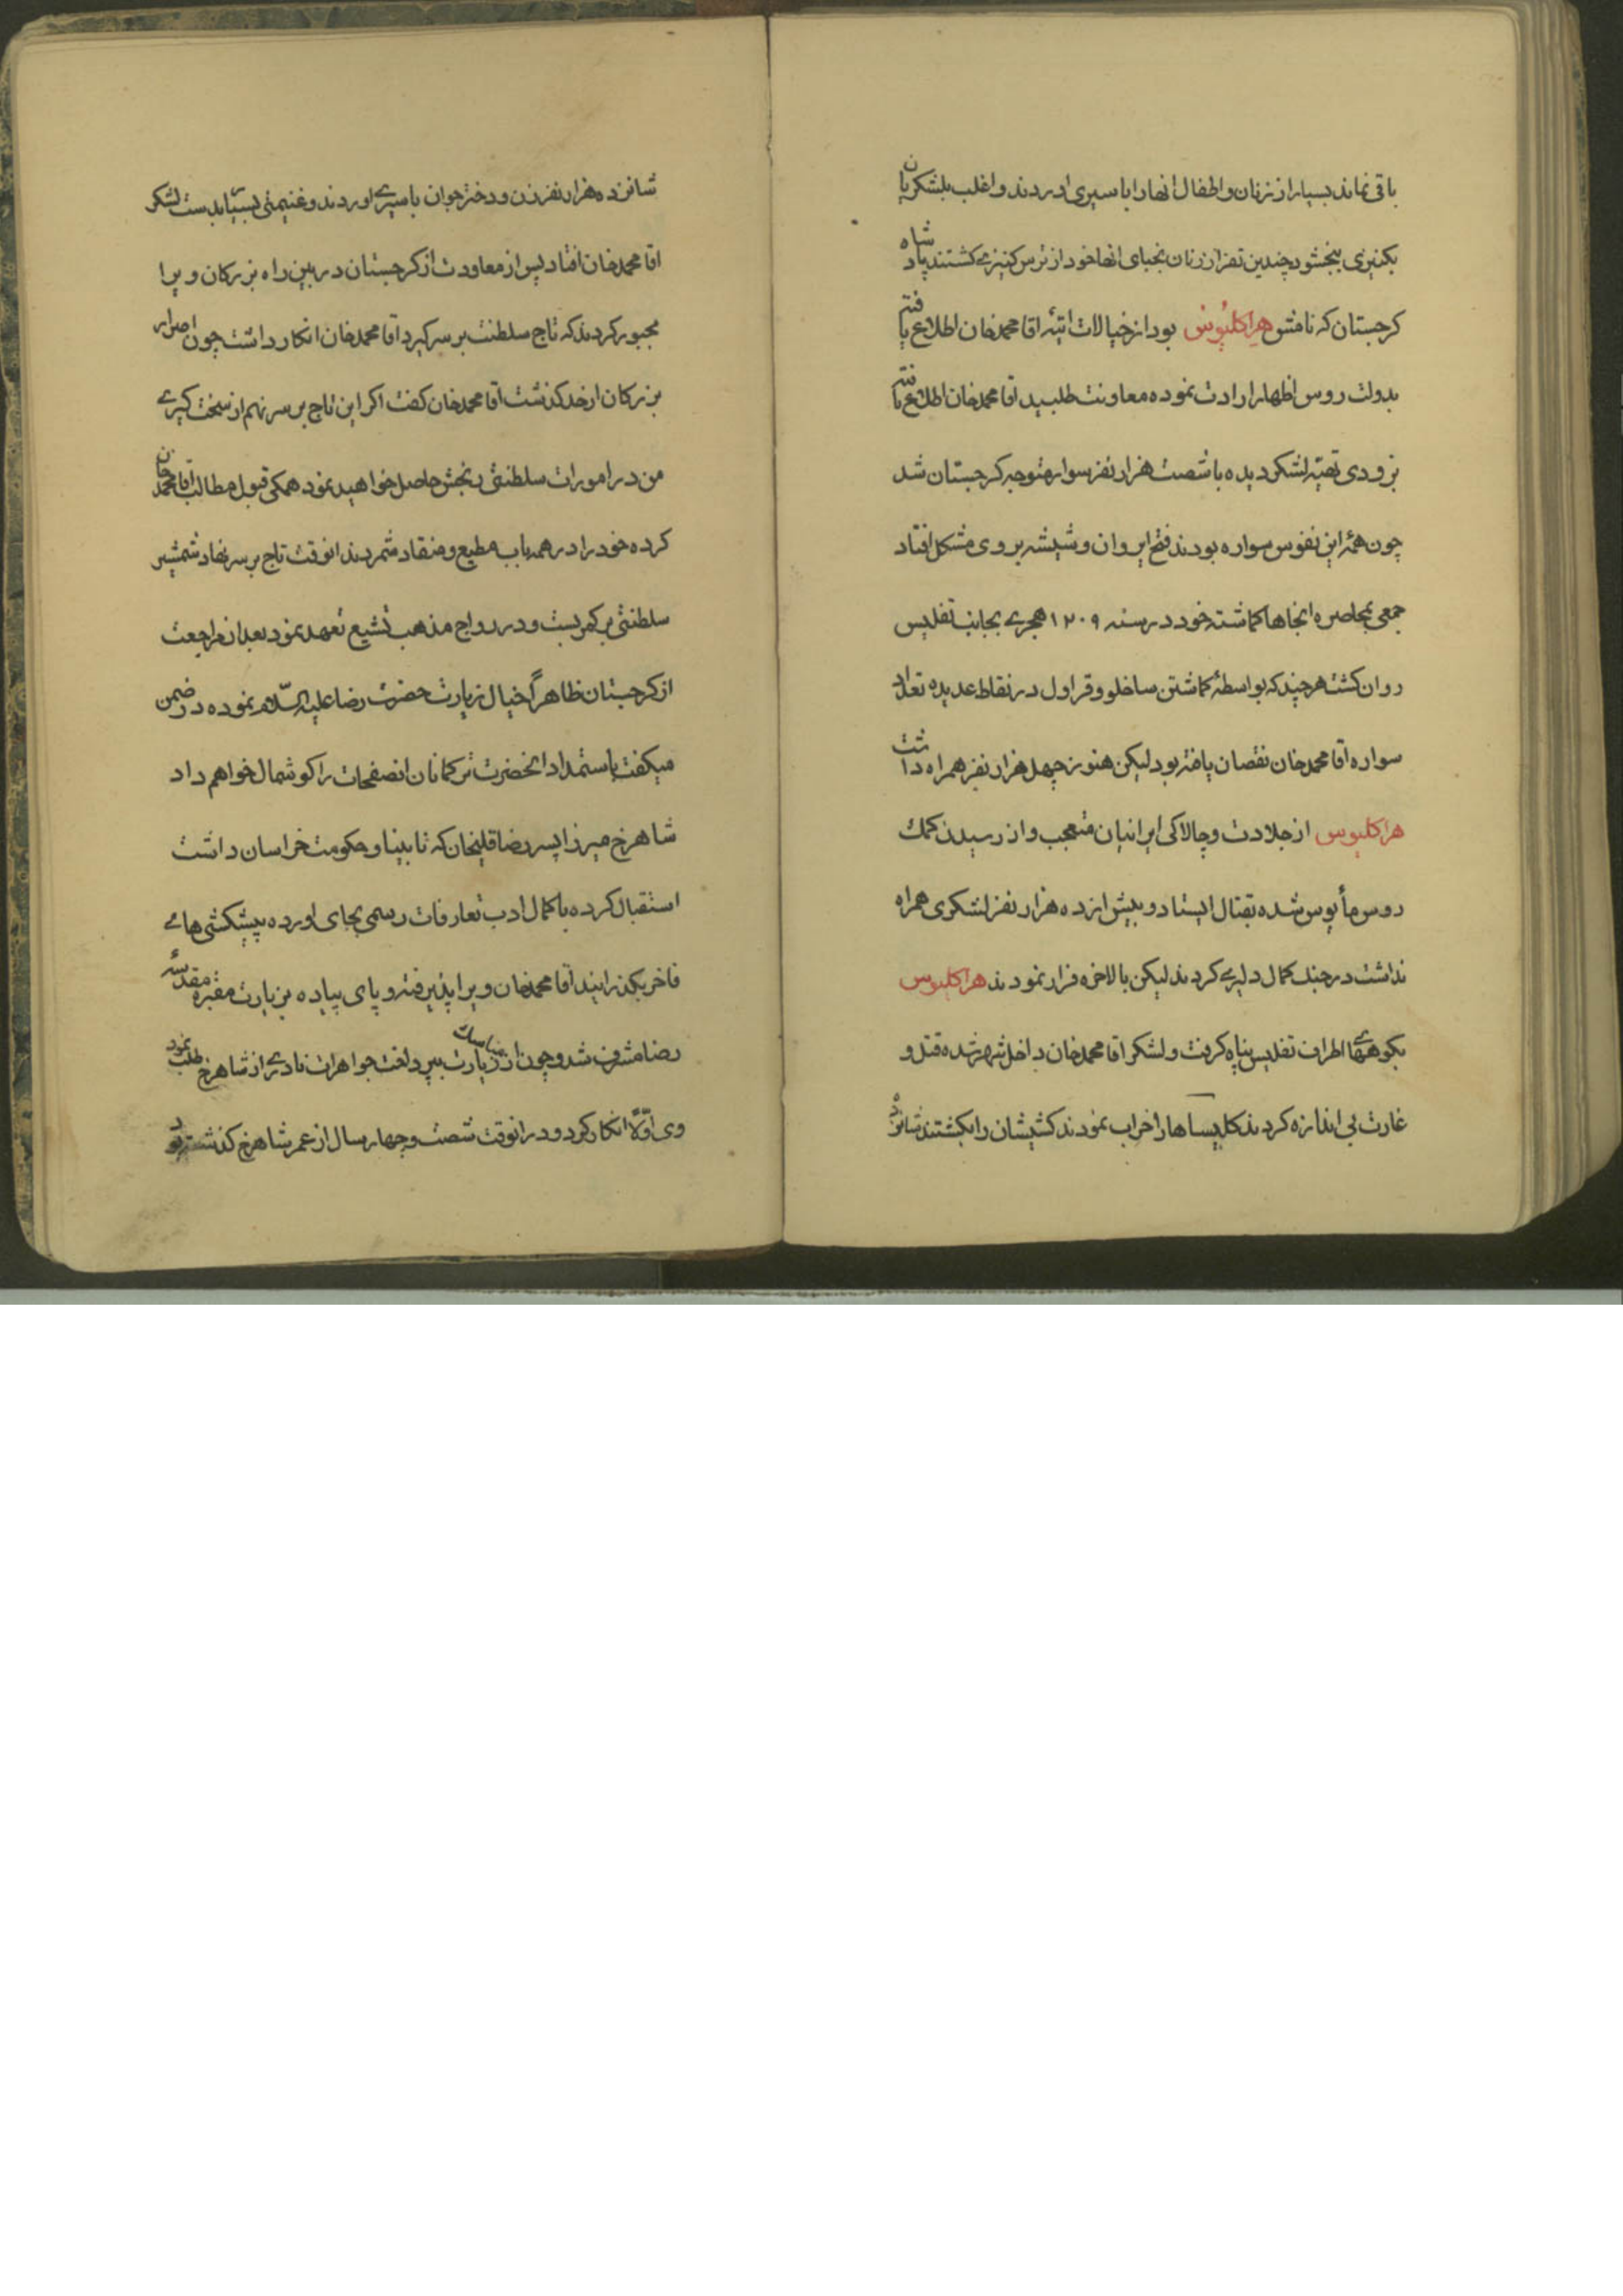 باقی نماند بسیار از زنان و اطفال انها را با سیری اوردند و اغلب بلشکریان
بکنیزی ببخشود چندین نفر از زنان نجبای انها خود از ترس کنیزے کشتند پادشاه
کرجستان که نامش هراکلیوس بود از خیالات اتیهٔ اقا محمدخان اطلاع یافته
بدولت روس اظهار ارادت نموده معاونت طلبید اقا محمدخان اطلاع یافته
بزودی تهیهٔ لشکر دیده با شصت هزار نفر سوار متوجه کرجستان شد
چون همهٔ این نفوس سواره بودند فتح ایروان و شیشه بر وی مشکل افتاد
جمعی بمحاصرهٔ انجاها کماشته خود در سنه ۱۲۰۹ هجرے بجانب تفلیس
روان کشت هر چند که بواسطهٔ کماشتن ساخلو و قراول در نقاط عدیده تعداد
سواره اقا محمدخان نقصان یافته بود لیکن هنوز چهل هزار نفر همراه داشت
هراکلیوس از جلادت و چالاکی ایرانیان متعجب و از رسیدن کمک
روس مأیوس شده بقتال ایستاد و بیش از ده هزار نفر لشکری همراه
نداشت در جنک کمال دلیرے کردند لیکن بالاخره فرار نمودند هراکلیوس
بکوههاے اطراف تفلیس پناه کرفت و لشکر اقا محمدخان داخل شهر شده قتل و
غارت بی اندازه کردند کلیساها را خراب نمودند کشیشان را بکشتند شانزده
شانزده هزار نفر زن و دختر جوان باسیرے اوردند و غنیمتی بسیار بدست لشکر
اقا محمدخان افتاد پس از معاودت از کرجستان در بین راه بزرکان ویرا
مجبور کردند که تاج سلطنت بر سر کیرد اقا محمدخان انکار داشت چون اصرار
بزرکان از حد کذشت اقا محمدخان کفت اکر این تاج بر سر نهم از سخت کیرے
من در امورات سلطنتی رنجش حاصل خواهید نمود همکی قبول مطالب اقا محمد خان
کرده خود را در همه باب مطیع و منقاد شمردند انوقت تاج بر سر نهاد شمشیر
سلطنتی بر کمر بست و در رواج مذهب تشیع تعهد نمود بعد از مراجعت
از کرجستان ظاهراً خیال زیارت حضرت رضا علیه السّلام نموده در ضمن
میکفت باستمداد انحضرت ترکمانان انصفحات را کوشمال خواهم داد
شاهرخ میرزا پسر رضا قلیخان که نابینا و حکومت خراسان داشت
استقبال کرده با کمال ادب تعارفات رسمی بجای اورده پیشکشی هاے
فاخر بکذرانید اقا محمدخان ویرا پذیرفته و پای پیاده بزیارت مقبره مقدسهٔ
رضا مشرف شد و چون از مناسک زیارت بپرداخت جواهرات نادرے از شاهرخ طلب نمود
وی اوّلاً انکار کرد و در انوقت شصت و چهار سال از عمر شاهرخ کذشته بود